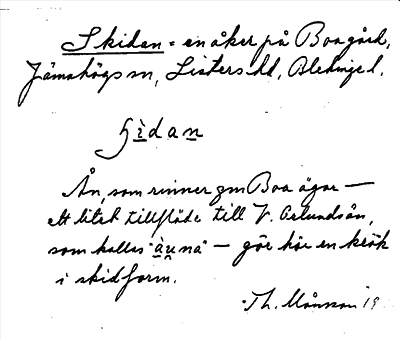 Skidan = en åker på Boa gård,
Jämshögs sn, Listers hd, Blekinge l.
ʃìdan
Ån, som rinner gm Boa ägor —
ett litet tillflöde till V. Orlundsån,
som kallas "àu̯na" — gör här en krök
i skidform.
Th. Månsson 19